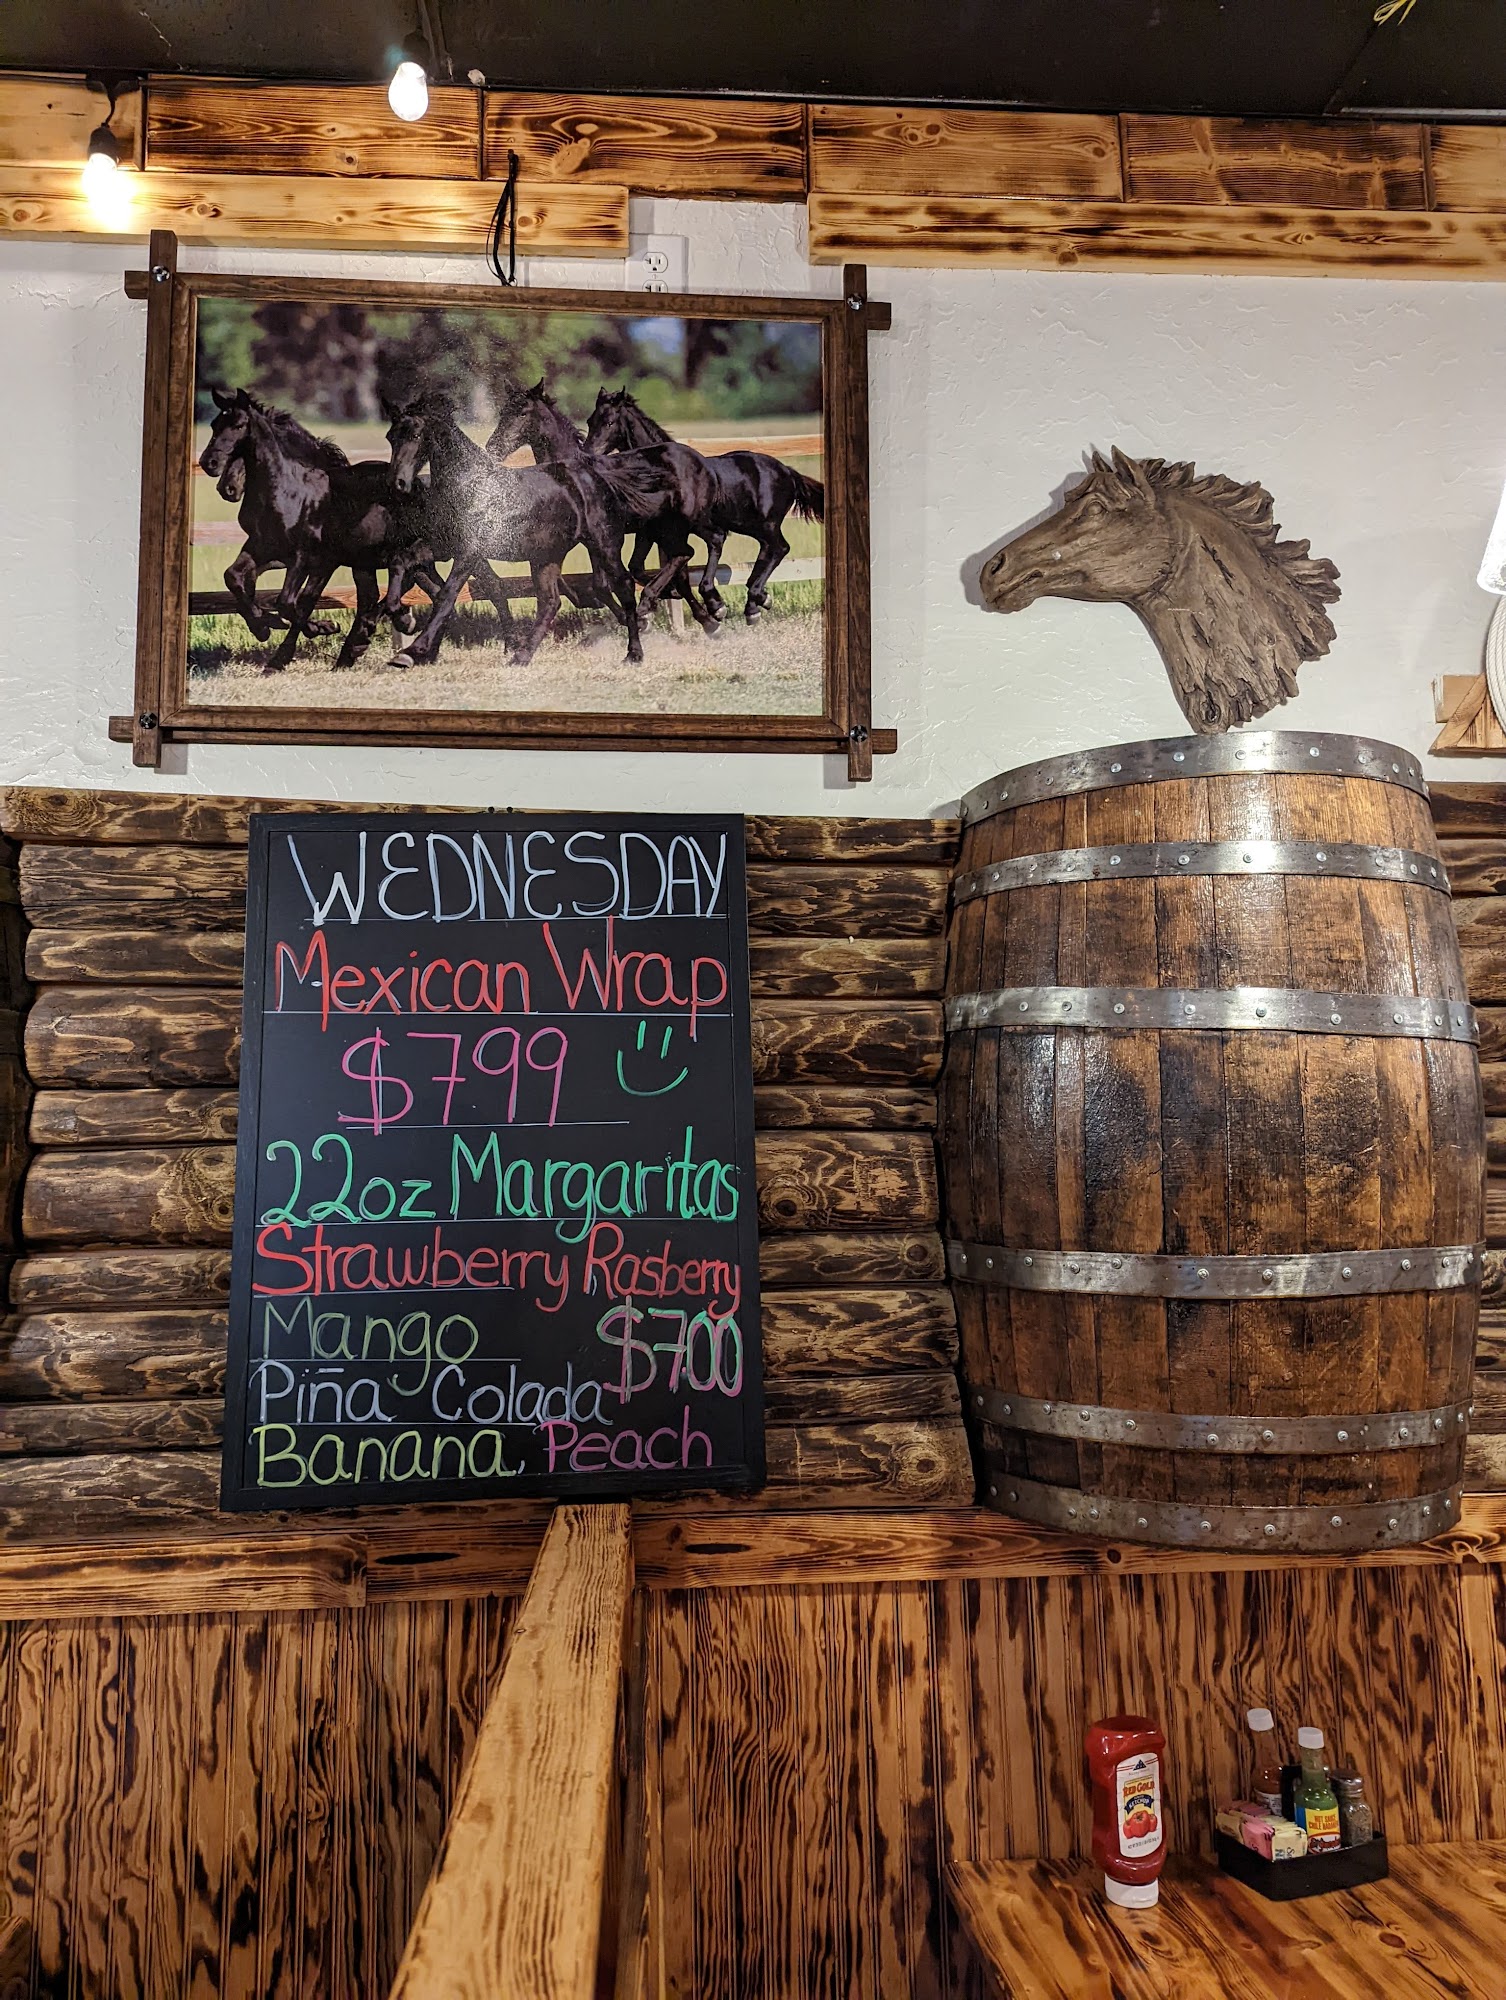 WEDNESDAY
Mexican Wrap
$799
22oz Margaritas
Strawberry Rasberry
Mango $700
Piña Colada
Banana, Peach
RED GOLD
KETCHUP
HOT SAUCE
CHILE HABANERO